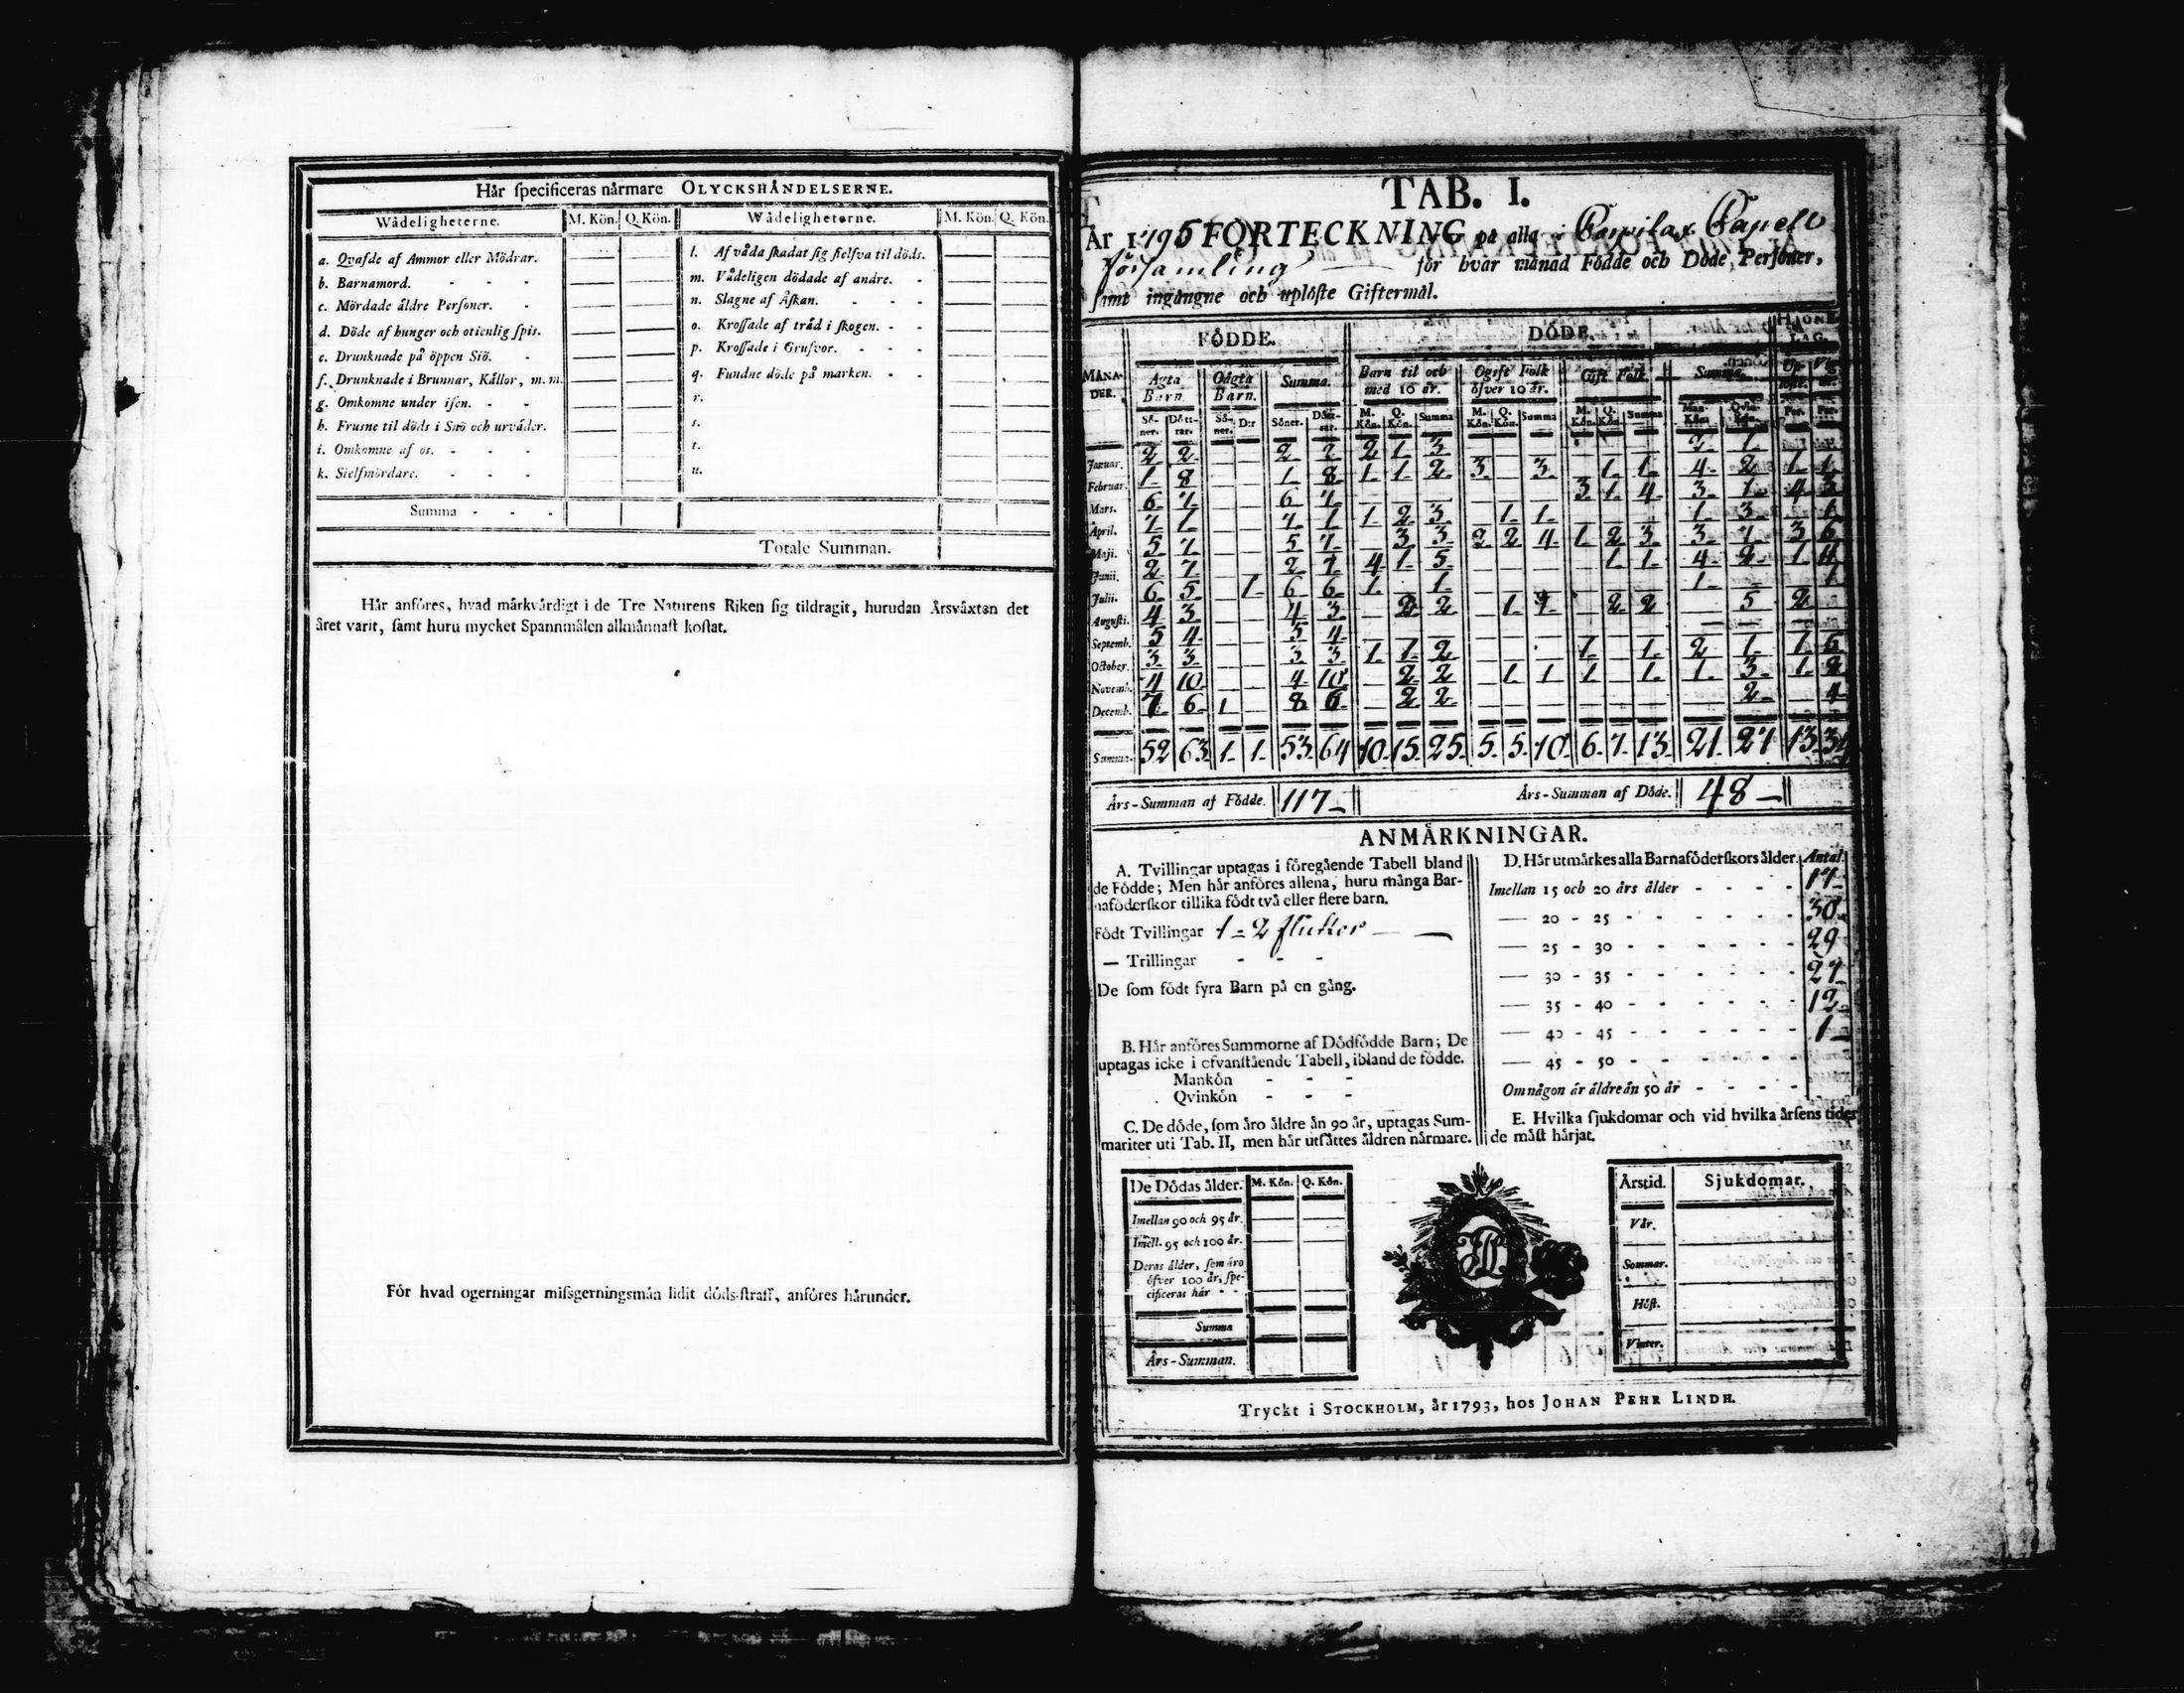 Hår ſpecificeras nårmare OLYCKSHÅNDELSERNE.
Wådeligheterne. M. Kön. Q. Kön. Wådeligheterne. M. Kön. Q. Kön.
a. Qvafde af Ammor eller Mödrar.
b. Barnamord. - - -
c. Mördade åldre Perſoner. -
d. Döde af hunger och otienlig ſpis.
e. Drunknade på öppen Siö. -
f. Drunknade i Brunnar, Kållor, m. m.
g. Omkomne under iſen. - -
h. Frusne til döds i Snö och urvåder.
i. Omkomne af os. - - -
k. Sielfmördare. - - -
l. Af våda ſkadat ſig ſielfva til döds.
m. Vådeligen dödade af andre. -
n. Slagne af Åſkan. - - -
o. Kroſſade af tråd i ſkogen. - -
p. Kroſſade i Grufvor. - - -
q. Fundne döde på marken. - -
r.
s.
t.
u.
Summa - - -
Totale Summan.
Hår anföres, hvad mårkvårdigt i de Tre Naturens Riken ſig tildragit, hurudan Årsvåxten det
året varit, ſamt huru mycket Spannmålen allmånnaſt koſtat.
För hvad ogerningar miſsgerningsmån lidit döds-ſtraff, anföres hårunder.
TAB. I.
År 1795 FORTECKNING på alla i
Församling för hvar månad Födde och Döde Perſoner,
ſamt ingångne och uplöſte Giftermål.
FÖDDE. DÖDE. HJONE-LAG.
MÅNADER. Ägta Barn. Oägta Barn. Summa. Barn til och med 10 år. Ogift Folk öfver 10 år. Gift Folk. Summa.
Söner. Döttrar. Söner. D:r Söner. Döttrar. M. Kön. Q. Kön. Summa M. Kön. Q. Kön. Summa M. Kön. Q. Kön. Summa Man-Kön. Qvin-Kön. Par. Par.
Januar. 2 2 2 2 2 1 3 2 1
Februar. 1 8 1 8 1 1 2 3 3 1 1 4 2 1 1
Mars. 6 7 6 7 3 1 4 3 1 4 3
April. 7 1 7 1 1 2 3 1 1 1 3 1
Maji. 5 7 5 7 3 3 2 2 4 1 2 3 3 7 3 6
Junii. 2 7 2 7 4 1 5 1 1 4 2 1
Julii. 6 5 1 6 6 1 1 1 1
Auguſti. 4 3 4 3 2 2 1 1 2 2 5 2
Septemb. 5 4 5 4
October. 3 3 3 3 1 1 2 1 1 2 1 1 6
Novemb. 4 10 4 10 2 2 1 1 1 1 1 3 1
Decemb. 7 6 1 8 6 2 2 2 4
Summa. 52 63 1 1 53 64 10 15 25 5 5 10 6 7 13 21 27 13 34
Års-Summan af Födde. 117 Års-Summan af Döde. 48
ANMÅRKNINGAR.
A. Tvillingar uptagas i föregående Tabell bland
de Födde; Men hår anföres allena, huru många Bar-
naföderſkor tillika födt två eller flere barn.
Födt Tvillingar 1 = 2 flickor
— Trillingar - - -
De ſom födt fyra Barn på en gång.
B. Hår anföres Summorne af Dödfödde Barn; De
uptagas icke i ofvanſtående Tabell, ibland de födde.
Mankön - - -
Qvinkön - - -
C. De döde, ſom åro åldre ån 90 år, uptagas Sum-
mariter uti Tab. II, men hår utſåttes åldren nårmare.
De Dödas ålder. M. Kön. Q. Kön.
Imellan 90 och 95 år.
Imell. 95 och 100 år.
Deras ålder, ſom åro
öfver 100 år, ſpe-
cificeras hår - -
Summa
Års-Summan.
D. Hår utmårkes alla Barnaföderſkors ålder. Antal.
Imellan 15 och 20 års ålder - - - - 17
— 20 - 25 - - - - - - 30
— 25 - 30 - - - - - - 29
— 30 - 35 - - - - - - 27
— 35 - 40 - - - - - - 12
— 40 - 45 - - - - - - 1
— 45 - 50 - - - - - -
Om någon år åldre ån 50 år - - - -
E. Hvilka ſjukdomar och vid hvilka årſens tider
de måſt hårjat.
Årstid. Sjukdomar.
Vår.
Sommar.
Höſt.
Vinter.
Tryckt i STOCKHOLM, år 1793, hos JOHAN PEHR LINDH.